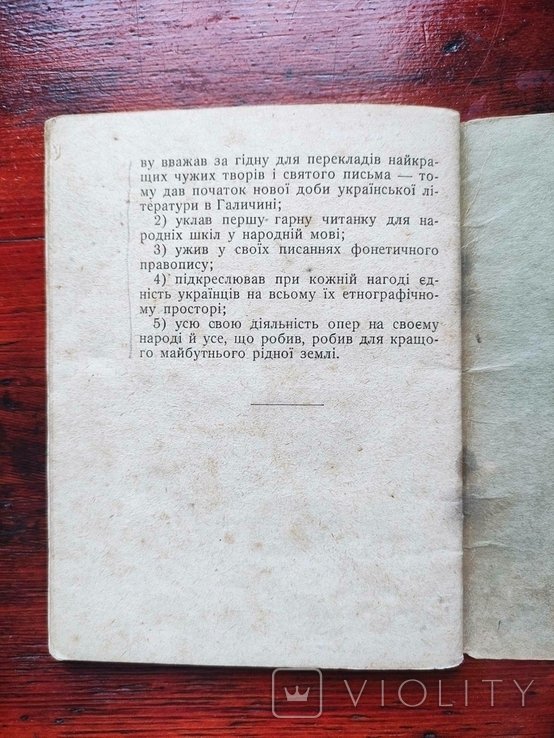 ву вважав за гідну для перекладів найкра-
щих чужих творів і святого письма — то-
му дав початок нової доби української лі-
тератури в Галичині;
2) уклав першу гарну читанку для на-
родніх шкіл у народній мові;
3) ужив у своїх писаннях фонетичного
правопису;
4) підкреслював при кожній нагоді єд-
ність українців на всьому їх етнографічно-
му просторі;
5) усю свою діяльність опер на своєму
народі й усе, що робив, робив для кращо-
го майбутнього рідної землі.
VIOLITY